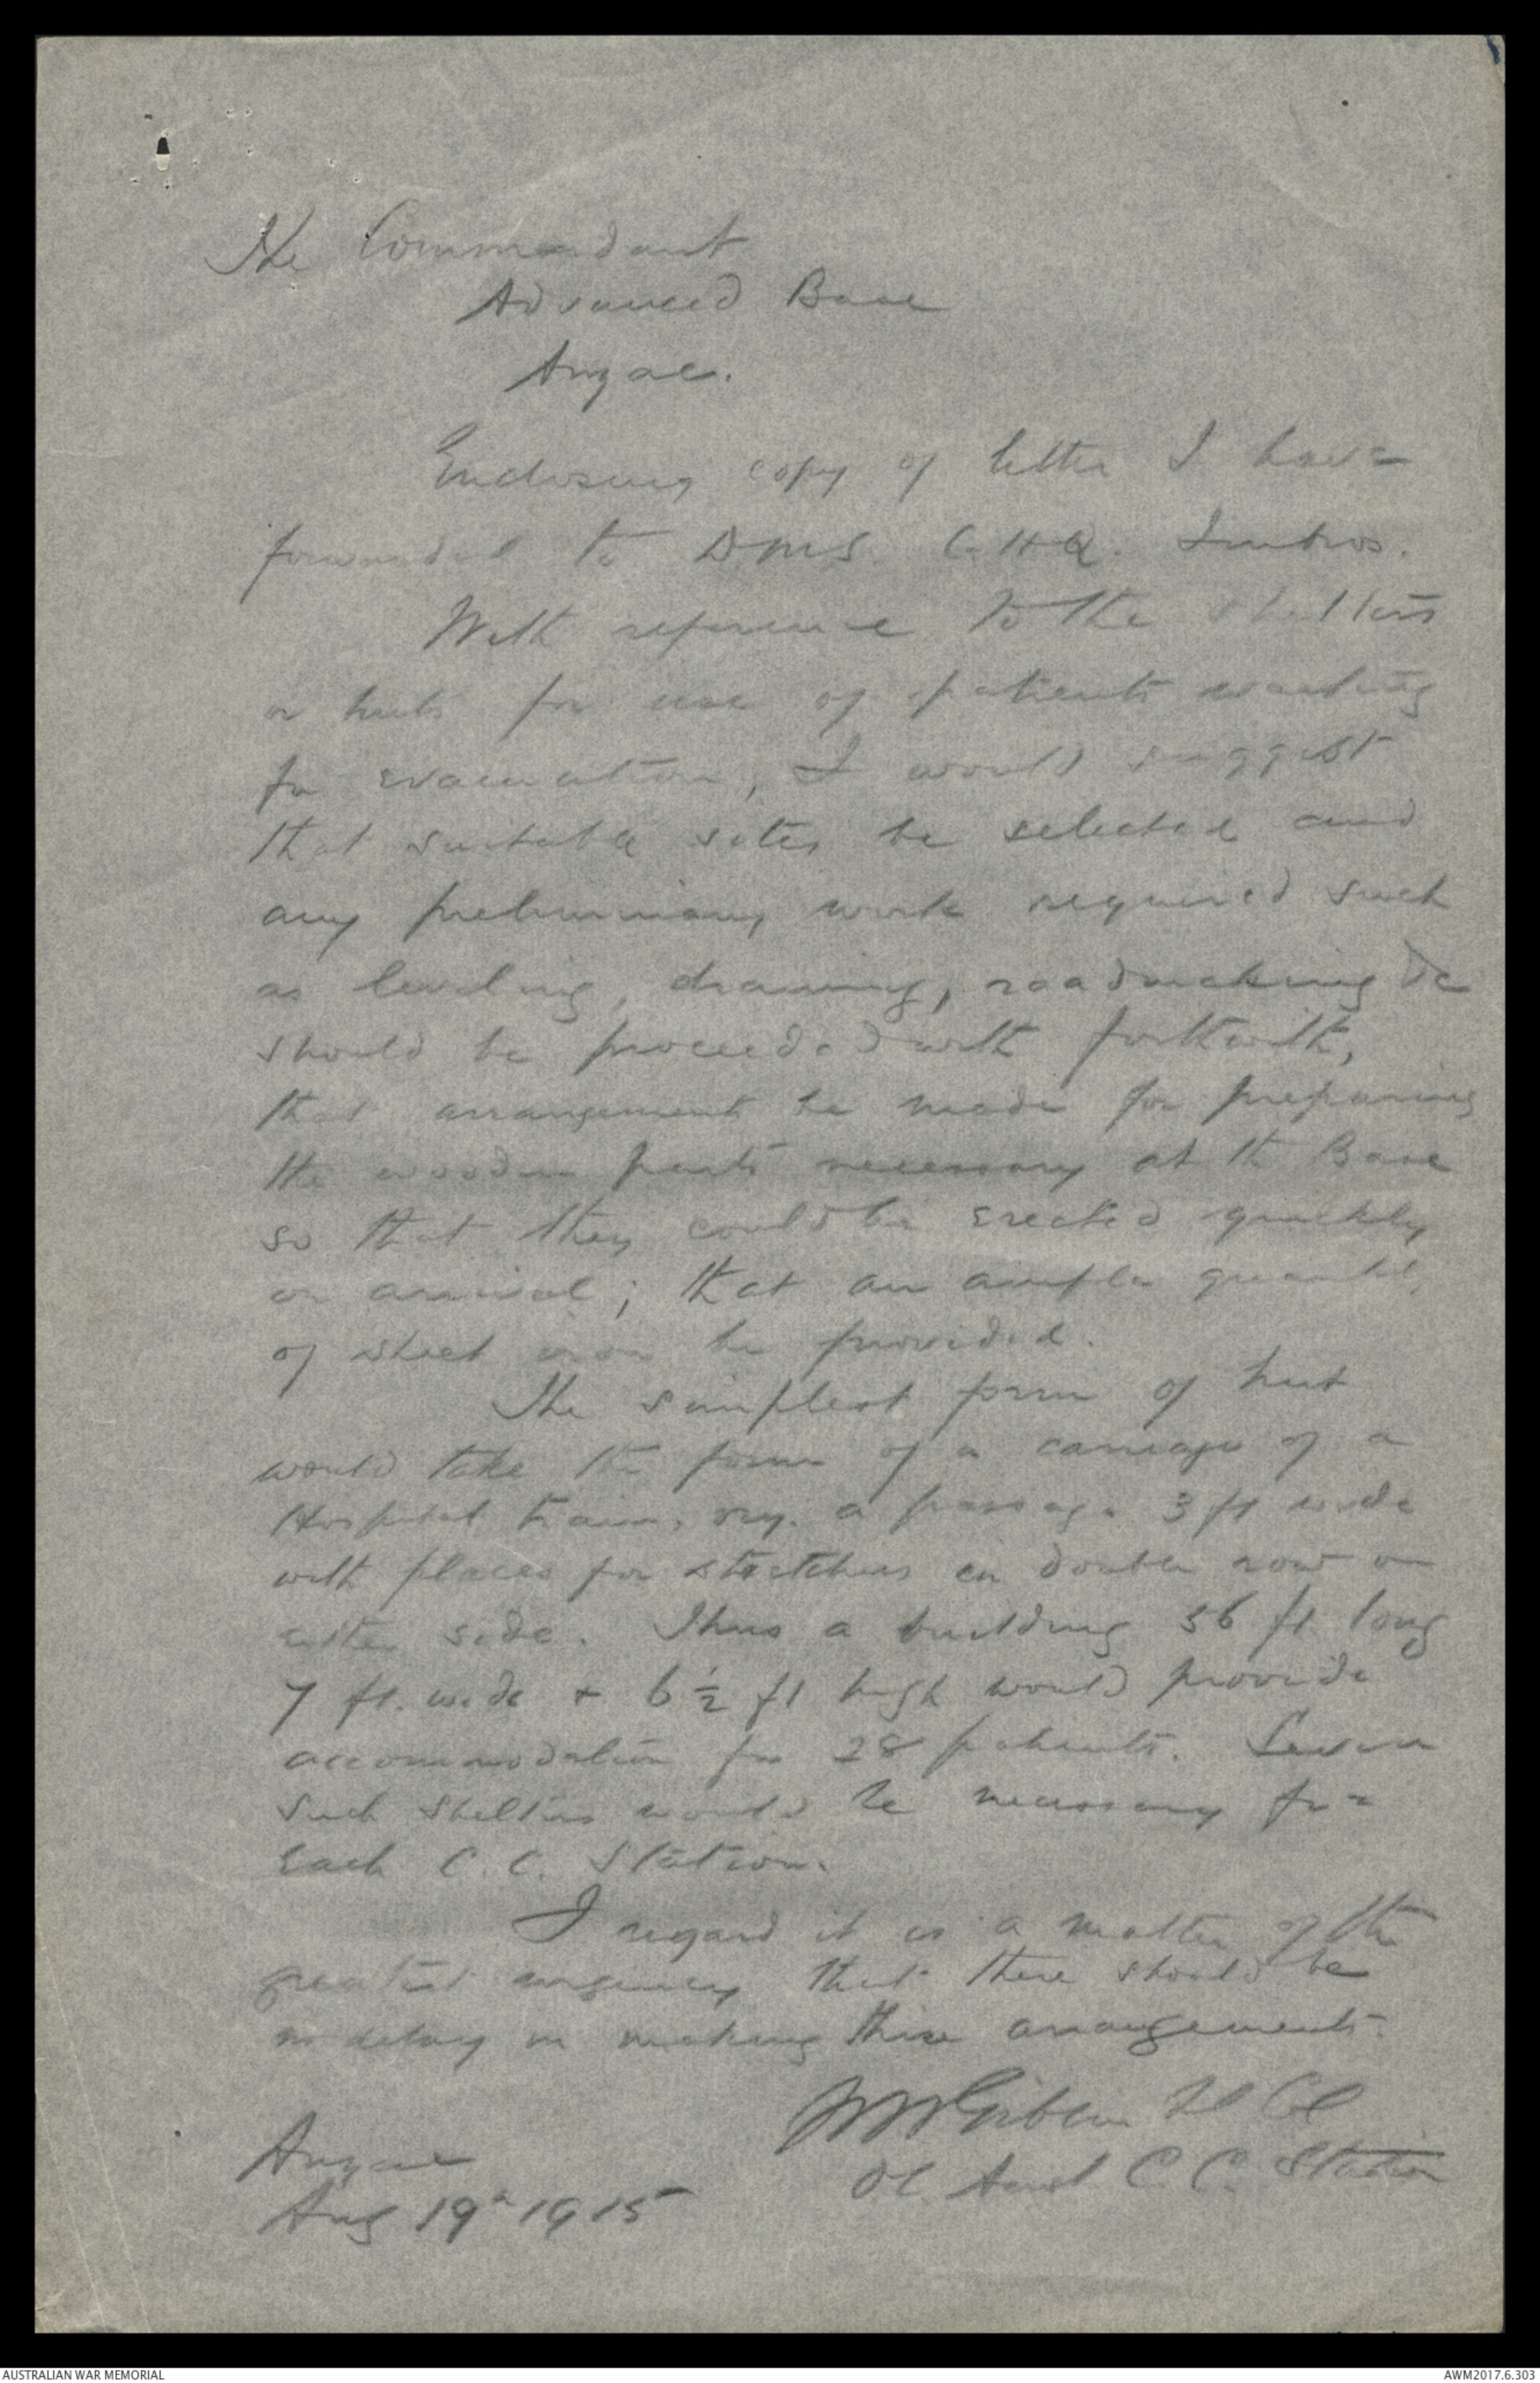 The Commandant
Advanced Base
Anzac.
Enclosing copy of letter I have
forwarded to DMS. GHQ. Imbros.
With reference to the shelters
or huts for use of patients waiting
for evacuation, I would suggest
that suitable sites be selected and
any preliminary work required such
as levelling, draining, roadmaking &c
should be proceeded with forthwith,
that arrangement be made for preparing
the wooden parts necessary at the Base
so that they could be erected quickly
on arrival; that an ample quantity
of sheet iron be provided.
The simplest form of hut
would take the form of a carriage of a
Hospital train, a passage 3 ft wide
with places for stretchers in double row on
either side. Thus a building 56 ft long
7 ft. wide + 6 ½ ft high would provide
accommodation for 28 patients. Seven
such shelters would be necessary for
each C. C. Station.
I regard it as a matter of the
greatest urgency that there should be
no delay in making these arrangements.
WWGiblin Lt Col
OC. Aust C. C. Station
Anzac
Aug 19th 1915
AUSTRALIAN WAR MEMORIAL
AWM2017.6.303